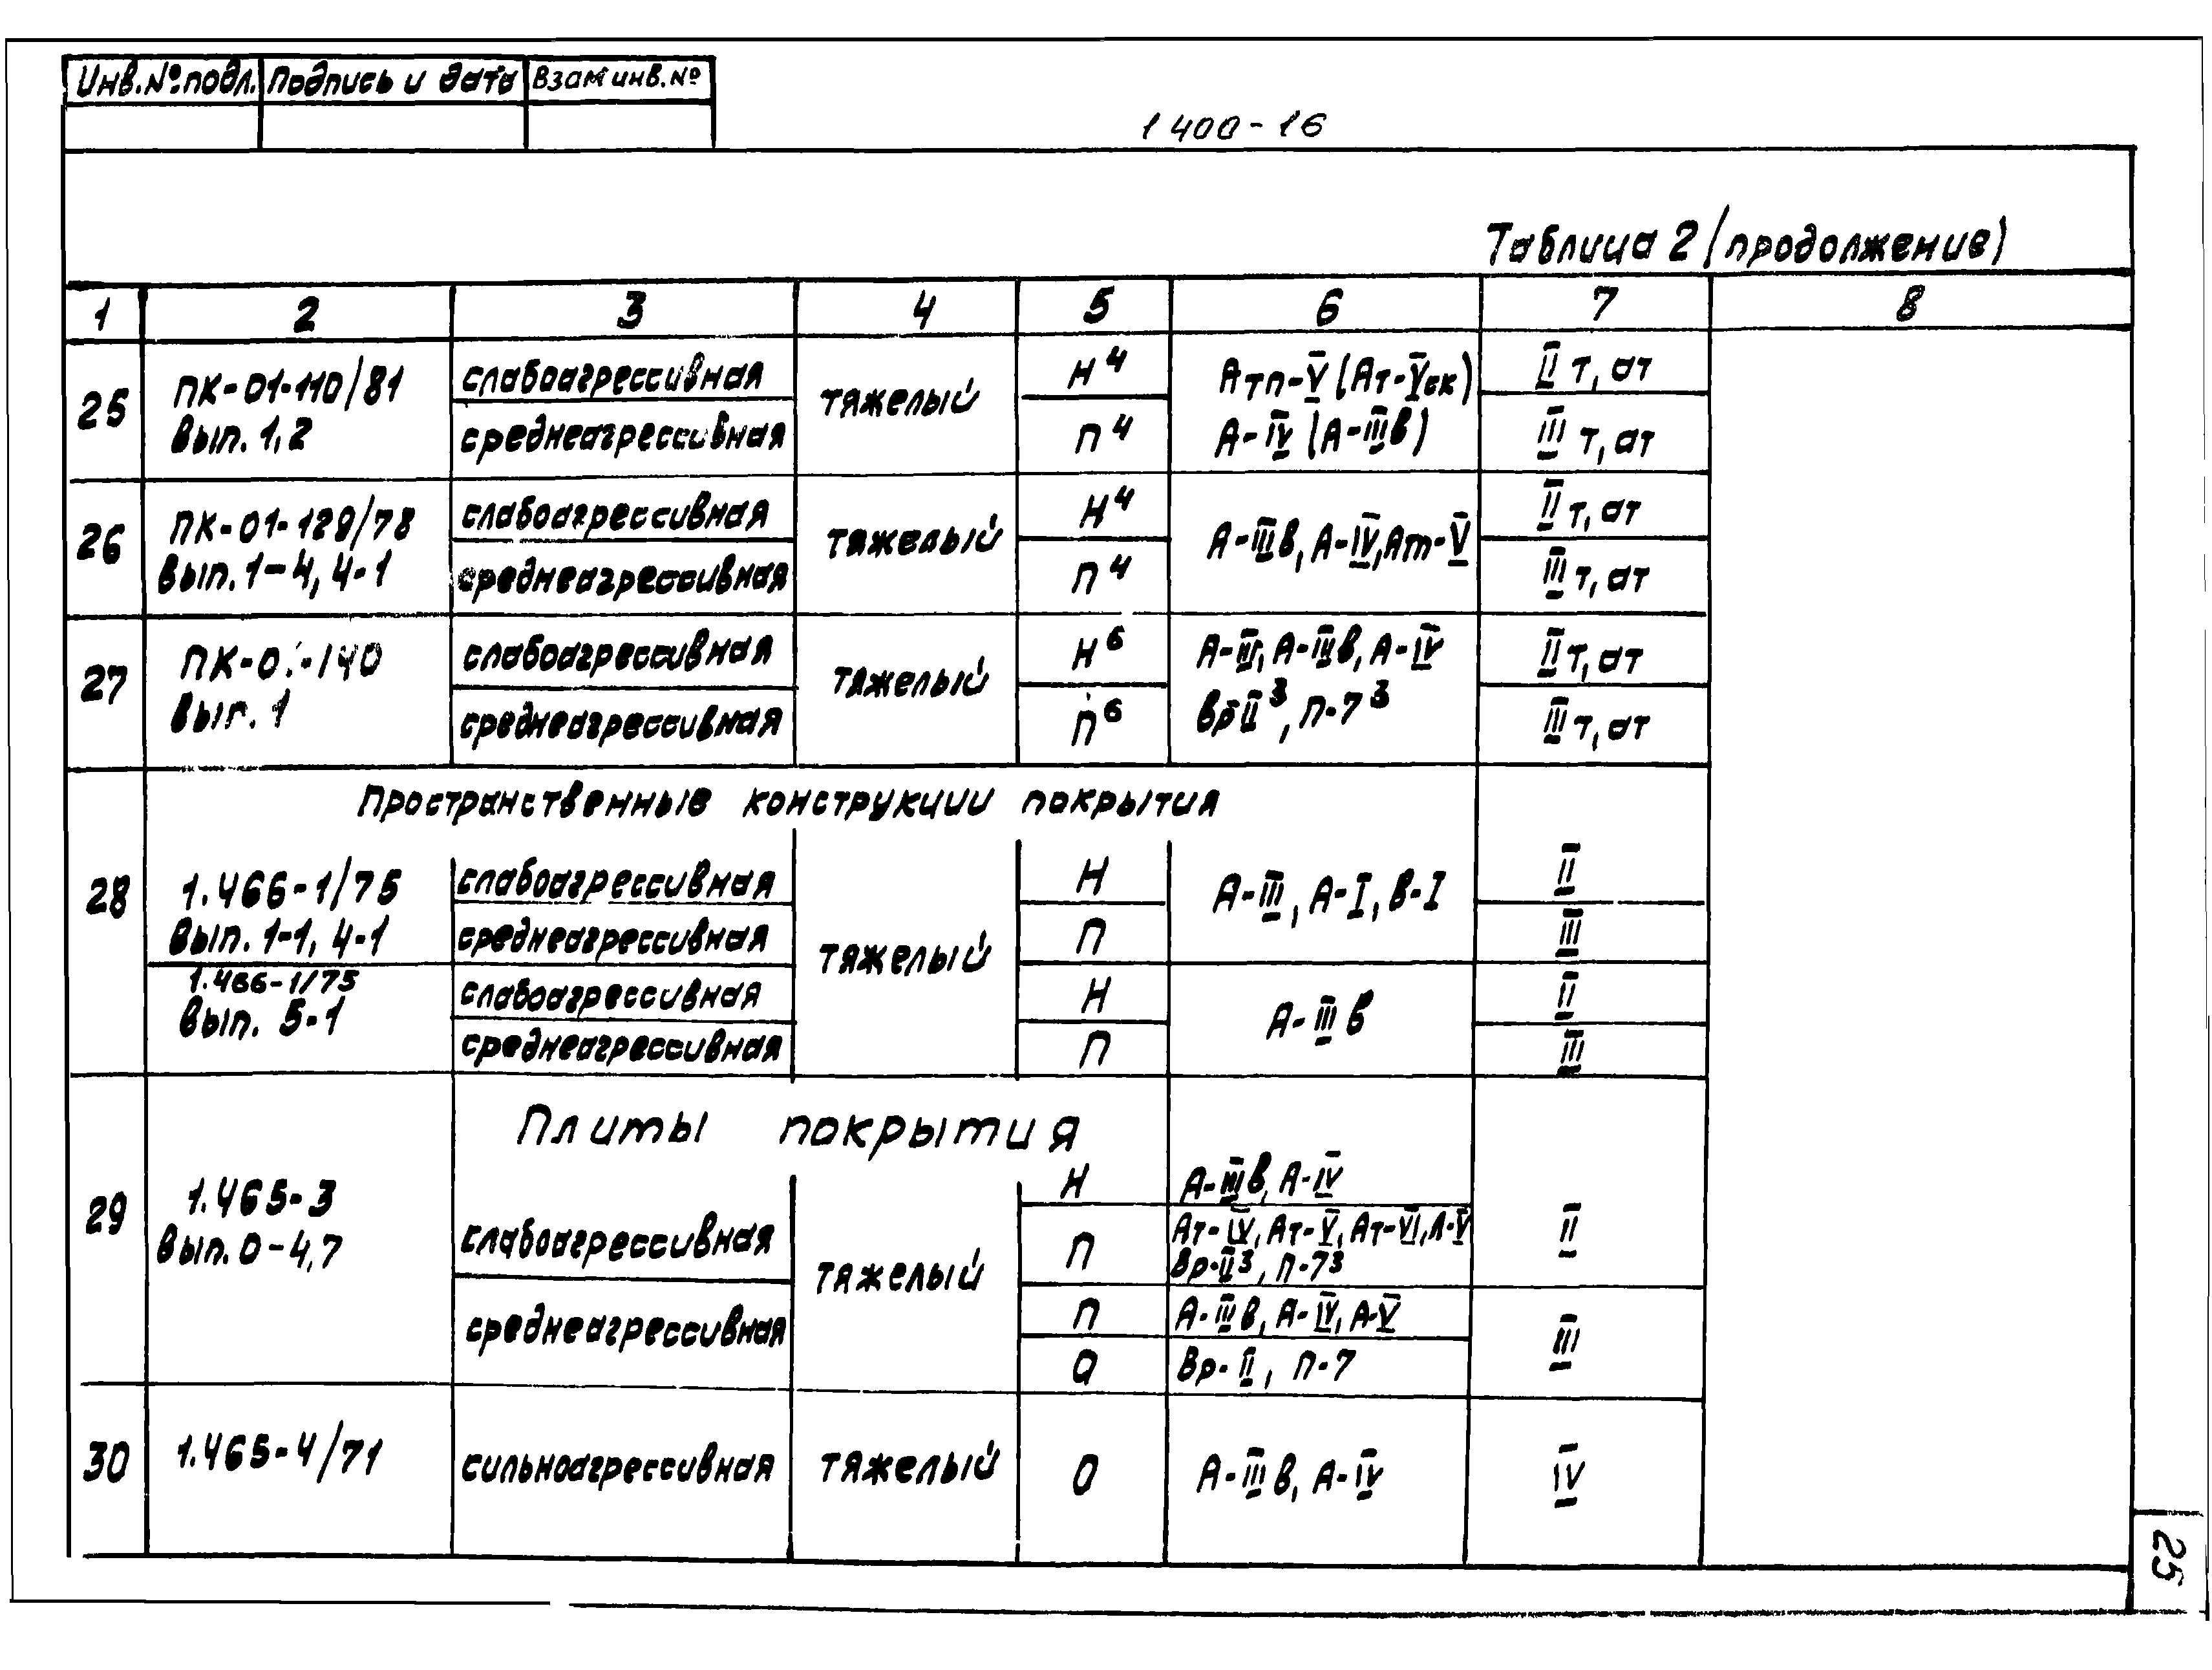 Инв.№ подл. Подпись и дата Взам инв.№
1400-16
Таблица 2 (продолжение)
1 2 3 4 5 6 7 8
25 ПК-01-110/81 вып. 1,2 слабоагрессивная тяжелый Н⁴ Атп-V (Ат-Vск) А-IV (А-IIIв) II т, ат
среднеагрессивная П⁴ III т, ат
26 ПК-01-129/78 вып. 1-4, 4-1 слабоагрессивная тяжелый Н⁴ А-IIIв, А-IV, Ат-V II т, ат
среднеагрессивная П⁴ III т, ат
27 вып. 1 слабоагрессивная тяжелый Н⁶ А-III, А-IIIв, А-IV Вр-II³, П-7³ II т, ат
среднеагрессивная П⁶ III т, ат
Пространственные конструкции покрытия
28 1.466-1/75 вып. 1-1, 4-1 слабоагрессивная тяжелый Н А-III, А-I, В-I II
среднеагрессивная П III
1.466-1/75 вып. 5-1 слабоагрессивная Н А-IIIв II
среднеагрессивная П III
Плиты покрытия
29 1.465-3 вып. 0-4,7 слабоагрессивная тяжелый Н А-IIIв, А-IV II
П Ат-IV, Ат-V, Ат-VI, А-V
Вр-II³, П-7³
среднеагрессивная П А-IIIв, А-IV, А-V III
О Вр-II, П-7
30 1.465-4/71 сильноагрессивная тяжелый О А-IIIв, А-IV IV
25